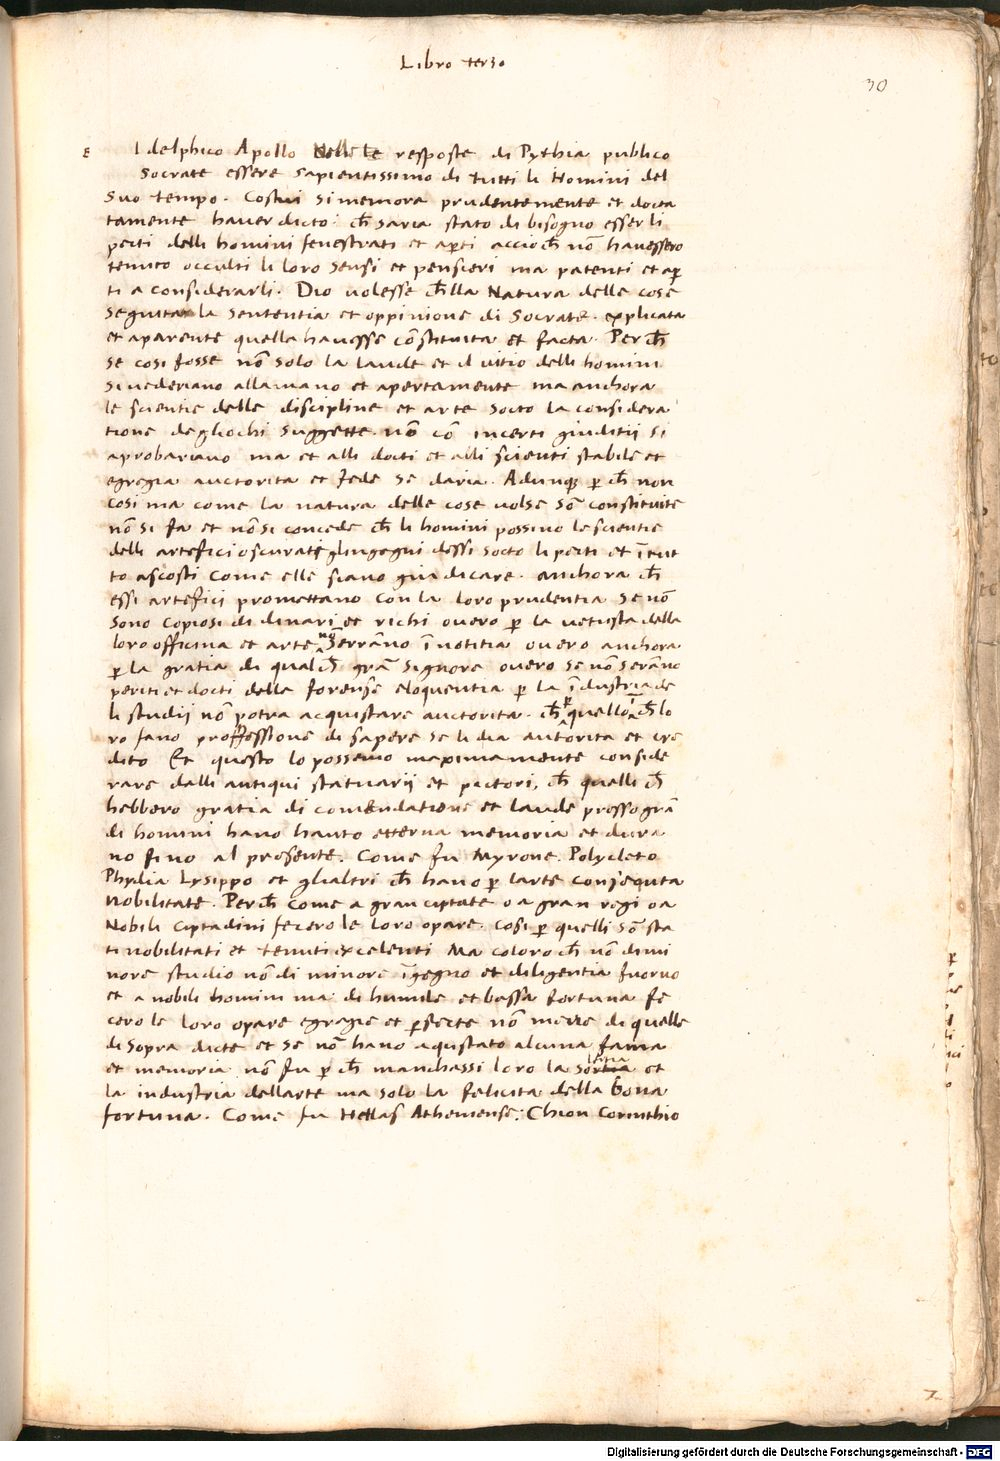 Libro terzo
30
E
l delphico Apollo Nelle le resposte di Pythia publico
Socrate essere sapientissimo di tutti li Homini del
Suo tempo. Costui si memora prudentemente et docta
tamente haver dicto: ch̄ saria stato di bisogno esser li
pecti delli homini fenestrati et aꝑti accioch̄ nō havessero
tenuto occulti li loro sensi et pensieri ma patenti et aꝑ
ti a considerarli. Dio volesse ch̄lla Natura delle cose
seguita la sententia et oppinione di Socrate. explicata
et aparente quella havesse cōstituita et facta. Per ch̄
se cosi fosse nō solo la laude et il vitio delli homini
si vederiano allamano et apertamente ma anchora
le scientie delle discipline et arte socto la considera
tione degliochi suggette. nō cō incerti giuditii si
aprobariano ma et alli docti et alli scienti stabile et
egregia auctorita et fede se daria. Adunqꝫ ꝑ ch̄ non
cosi ma come la natura delle cose volse sō constituite
nō si fa et nō si concede ch̄ li homini possino le scientie
delli artefici oscurati glingegni dessi socto li pecti et ītut
to ascosti come elle siano giudicare. anchora ch̄
essi artefici promettano con la loro prudentia se nō
sono copiosi di dinari et richi overo ꝑ la vetusta della
loro officina et arte nō serranno ī notitia overo anchora
ꝑ la gratia di qualch̄ grā signore overo se nō serāno
periti et docti della forense eloquentia ꝑ la īdustria de
li studii nō potra acquistare auctorita. ch̄ ꝑ quello ī ch̄ lo
ro fano proffessione di sapere se li dia autorita et cre
dito Et questo lo possemo maximamente conside
rare dalli antiqui statuarii et pictori, ch̄ quelli ch̄
hebbero gratia di comendatione et laude presso grā
di homini hano hauto etterna memoria et dura
no fino al presente. Come fu Myrone. Polycleto
Phydia Lysippo et glialtri ch̄ hano ꝑ larte consequta
Nobilitate. Perch̄ come a gran ciptate o a gran regi o a
Nobili ciptadini fecero le loro opare. cosi ꝑ quelli sō sta
ti nobilitati et tenuti excelenti Ma coloro ch̄ nō di mi
nore studio nō di minore īgegno et diligentia fuorno
et a nobili homini ma di humile et bassa fortuna fe
cero le loro opare egregie et ꝑfecte nō meno di quelle
di sopra dicte et se nō hano aqustato alcuna fama
et memoria nō fu ꝑ ch̄ manchassi loro la solertia et
la industria dellarte ma solo la felicita della bona
fortuna. Come fu Hellas Atheniense: Chion Corinthio
Digitalisierung gefördert durch die Deutsche Forschungsgemeinschaft - DFG